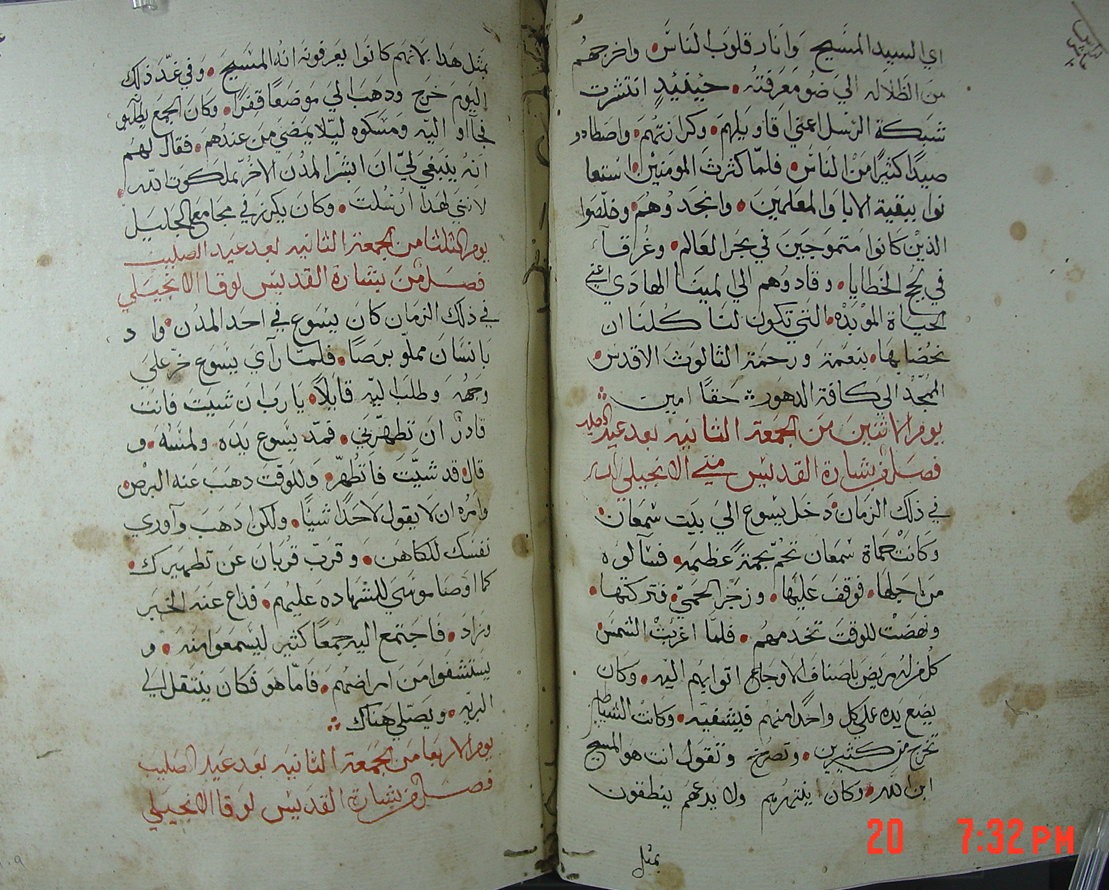 اي السيد المسيح وانار قلوب الناس واخرجهم
من الظلاله الي ضو معرفته حينيدٍ انتشرت
شبكة الرسل اعني اقاويلهم وكرازتهم واصطادو
صيدًا كثيرًا من الناس فلمّا كثرت المومنين استعا
نوا ببقية الابا والمعلمين وانجدوهم وخلصوا
الذين كانوا متموجين في بحر العالم وغرقا
في لجج الخطايا وقادوهم الي لمينا الهادي اعني
الحياة الموبده التي تكون لنا كلنا ان
نحضا بها بنعمة ورحمة الثالوث الاقدس
الممجّد الي كافة الدهور حقًا امين
يوم الاثنين من الجمعة الثانيه بعد عيد الصليب
فصل من بشارة القديس متي الانجيلي
في ذلك الزمان دخل يسوع الي بيت سمعان
وكانت حماة سمعان تحم بحمةً عظيمه فسالوه
من اجلها فوقف عليها وزجر الحمي فتركتها
ونهضت للوقت تخدمهم فلما اغربت الشمس
كل من له مريض باصناف الاوجاع اتوا بهم اليه وكان
يضع يده علي كل واحدًا منهم فيشفيه وكانت الشياطين
تخرج من كثيرين وتصرخ وتقول انت هو المسيح
ابن الله وكان ينتهرهم ولا يدعهم ينطقون
بمثل
بمثل هدا لانهم كانوا يعرفونه انه المسيح وفي غد ذلك
اليوم خرج ودهب الي موضعًا قفرًا وكان الجمع يطلبو
فجااو اليه ومسكوه ليلا يمضي من عندهم فقال لهم
انه ينبغي لي ان ابشر المدن الاخر بملكوت الله
لانني لهدا ارسلت وكان يكرز في مجامع الجليل
يوم الثلثا من الجمعة الثانيه بعد عيد الصليب
فصل من بشارة القديس لوقا الانجيلي
في ذلك الزمان كان يسوع في احد المدن واد
بانسان مملو برصًا فلمّا راي يسوع خر علي
وجهه وطلب ليه قايلًا يارب ان شيت فانت
قادرًا ان تطهرني فمد يسوع يده ولمسه و
قال قد شيت فاتطهر وللوقت دهب عنه البرص
وامره ان لا يقول لاحدًا شيًا ولكن دهب واوري
نفسك للكاهن وقرب قربان عن تطهيرك
كما اوصا موسي للشهاده عليهم فداع عنه الخبر
وزاد فاجتمع اليه جمعًا كثير ليسمعوا منه و
يستشفوا من امراضهم فاما هو فكان ينتقل الي
البريه ويصلي هناك
يوم الاربعا من الجمعة الثانيه بعد عيد الصليب
فصل من بشارة القديس لوقا الانجيلي
20 7:32 PM